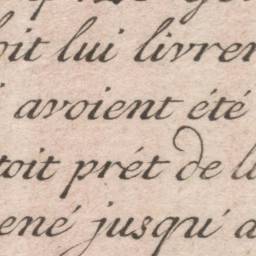 oit lui livrer
avoient été
toit prét de l
ené jusqu'á a